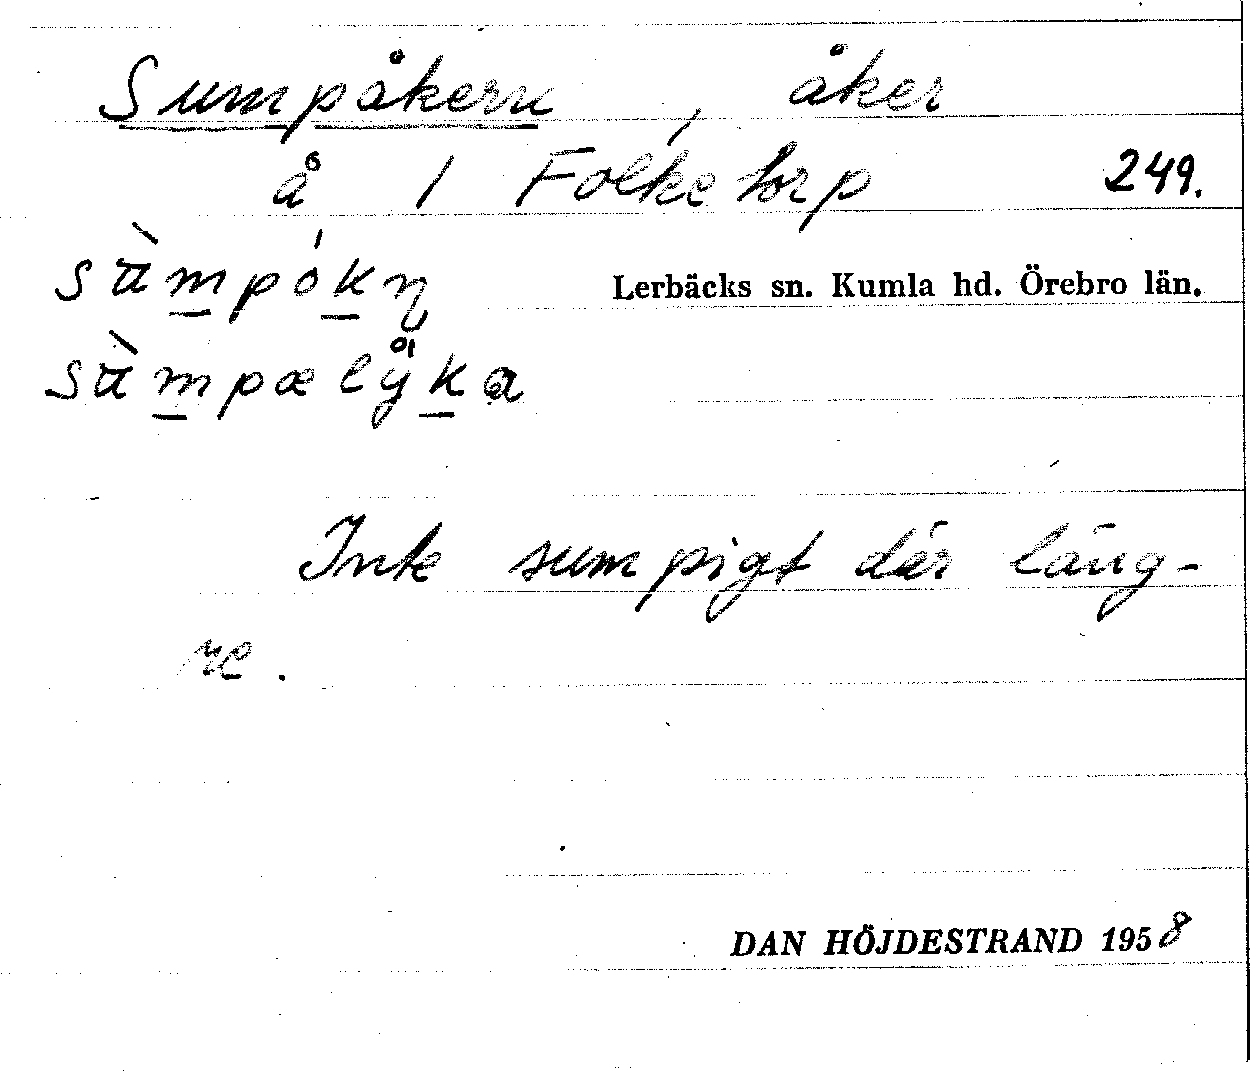 Sumpåkern, åker
å 1 Folketorp 249.
sùmpókn̥ Lerbäcks sn. Kumla hd. Örebro län.
sùmpælyka
Inte sumpigt där läng-
re.
DAN HÖJDESTRAND 1958